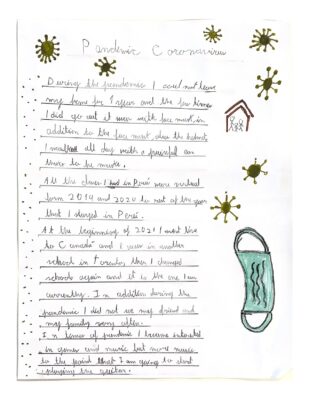 Pandemic Coronavirus
During the pandemic I could not leave
my home for 1 year and the few times
I did go out it was with face mask, in
addition to the face mask also the helmet,
I all day with a painful
there to be
All the classes I had in Perú were virtual
form 2019 and 2020 to rest of the year
that I stayed in Perú.
At the beginning of 2021 I went live
to Canadá and I was in another
school in then I changed
schools again and it is the one I am
currently. In addition during the
pandemic I did not see my friend and
my family very often.
In times of pandemic I became interested
in games and music but more music
to the point that I am going to start
playing the guitar.